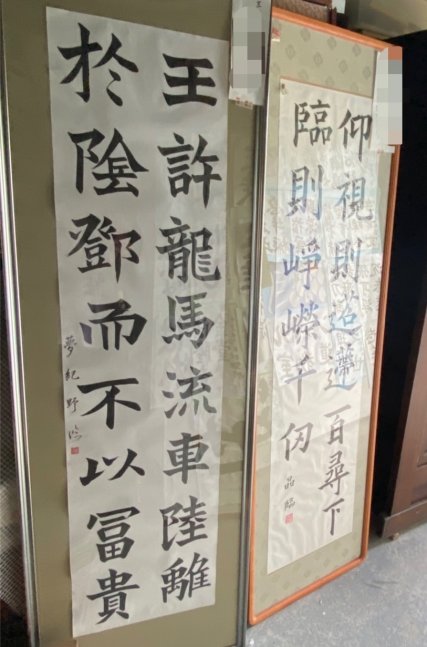 仰視則迢遰百尋下
臨則崢嶸千仞
品臨
王許龍馬流車陸離
於陰鄧而不以冨貴
夢紀野臨